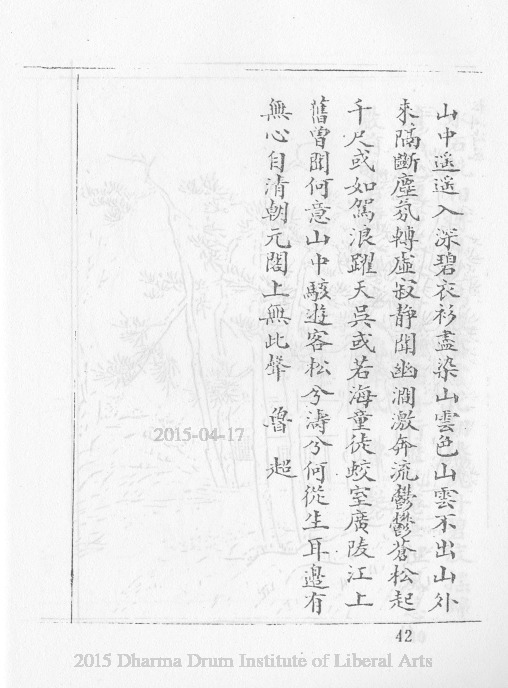 山中遙遙入深碧衣衫盡染山雲色山雲不出山外
來隔斷塵氛轉虛寂靜聞幽澗激奔流鬱鬱蒼松起
千尺或如駕浪躍天吳或若海童徒蛟室廣陵江上
舊曾聞何意山中駭遊客松兮濤兮何從生耳邊有
無心自清朝元閣上無此聲 魯超
2015-04-17
42
2015 Dharma Drum Institute of Liberal Arts